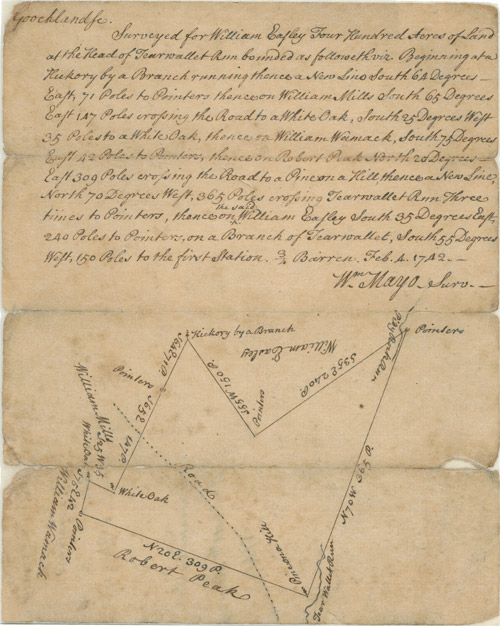 Goochland fc.
Surveyed for William Easley Four Hundred Acres of Land
at the Head of Tearwallet Run bounded as followeth viz. Beginning at a
Hickory by a Branch running thence a New Line South 64 Degrees
East, 71 Poles to Pointers thence on William Mills South 65 Degrees
East 147 Poles crossing the Road to a White Oak, South 25 Degrees West
35 Poles to a White Oak, thence on William Wamack, South 75 Degrees
East 42 Poles to Pointers, thence on Robert Peak North 20 Degrees
East 309 Poles crossing the Road to a Pine on a Hill thence a New Line
North 70 Degrees West, 365 Poles crossing Tearwallet Run Three
times to Pointers, thence on the said William Easley South 35 Degrees East,
240 Poles to Pointers, on a Branch of Tearwallet, South 55 Degrees
West, 150 Poles to the first Station. 3/4 Barren. Feb. 4. 1742.
Wm. Mayo Surv.
Hickory by a Branch
William Easley
Pointers
S64E 71 P.
S55W 150 P.
S35E 240 P.
Pointers
Pointers
S65E 147 P.
William Mills
S25W 35
White Oak
White Oak
Road
N70W 365 P.
William Wamack
S75E 42
Pointers
N20E. 309 P.
Robert Peak
Pine on a Hill
Tear Wallet Run